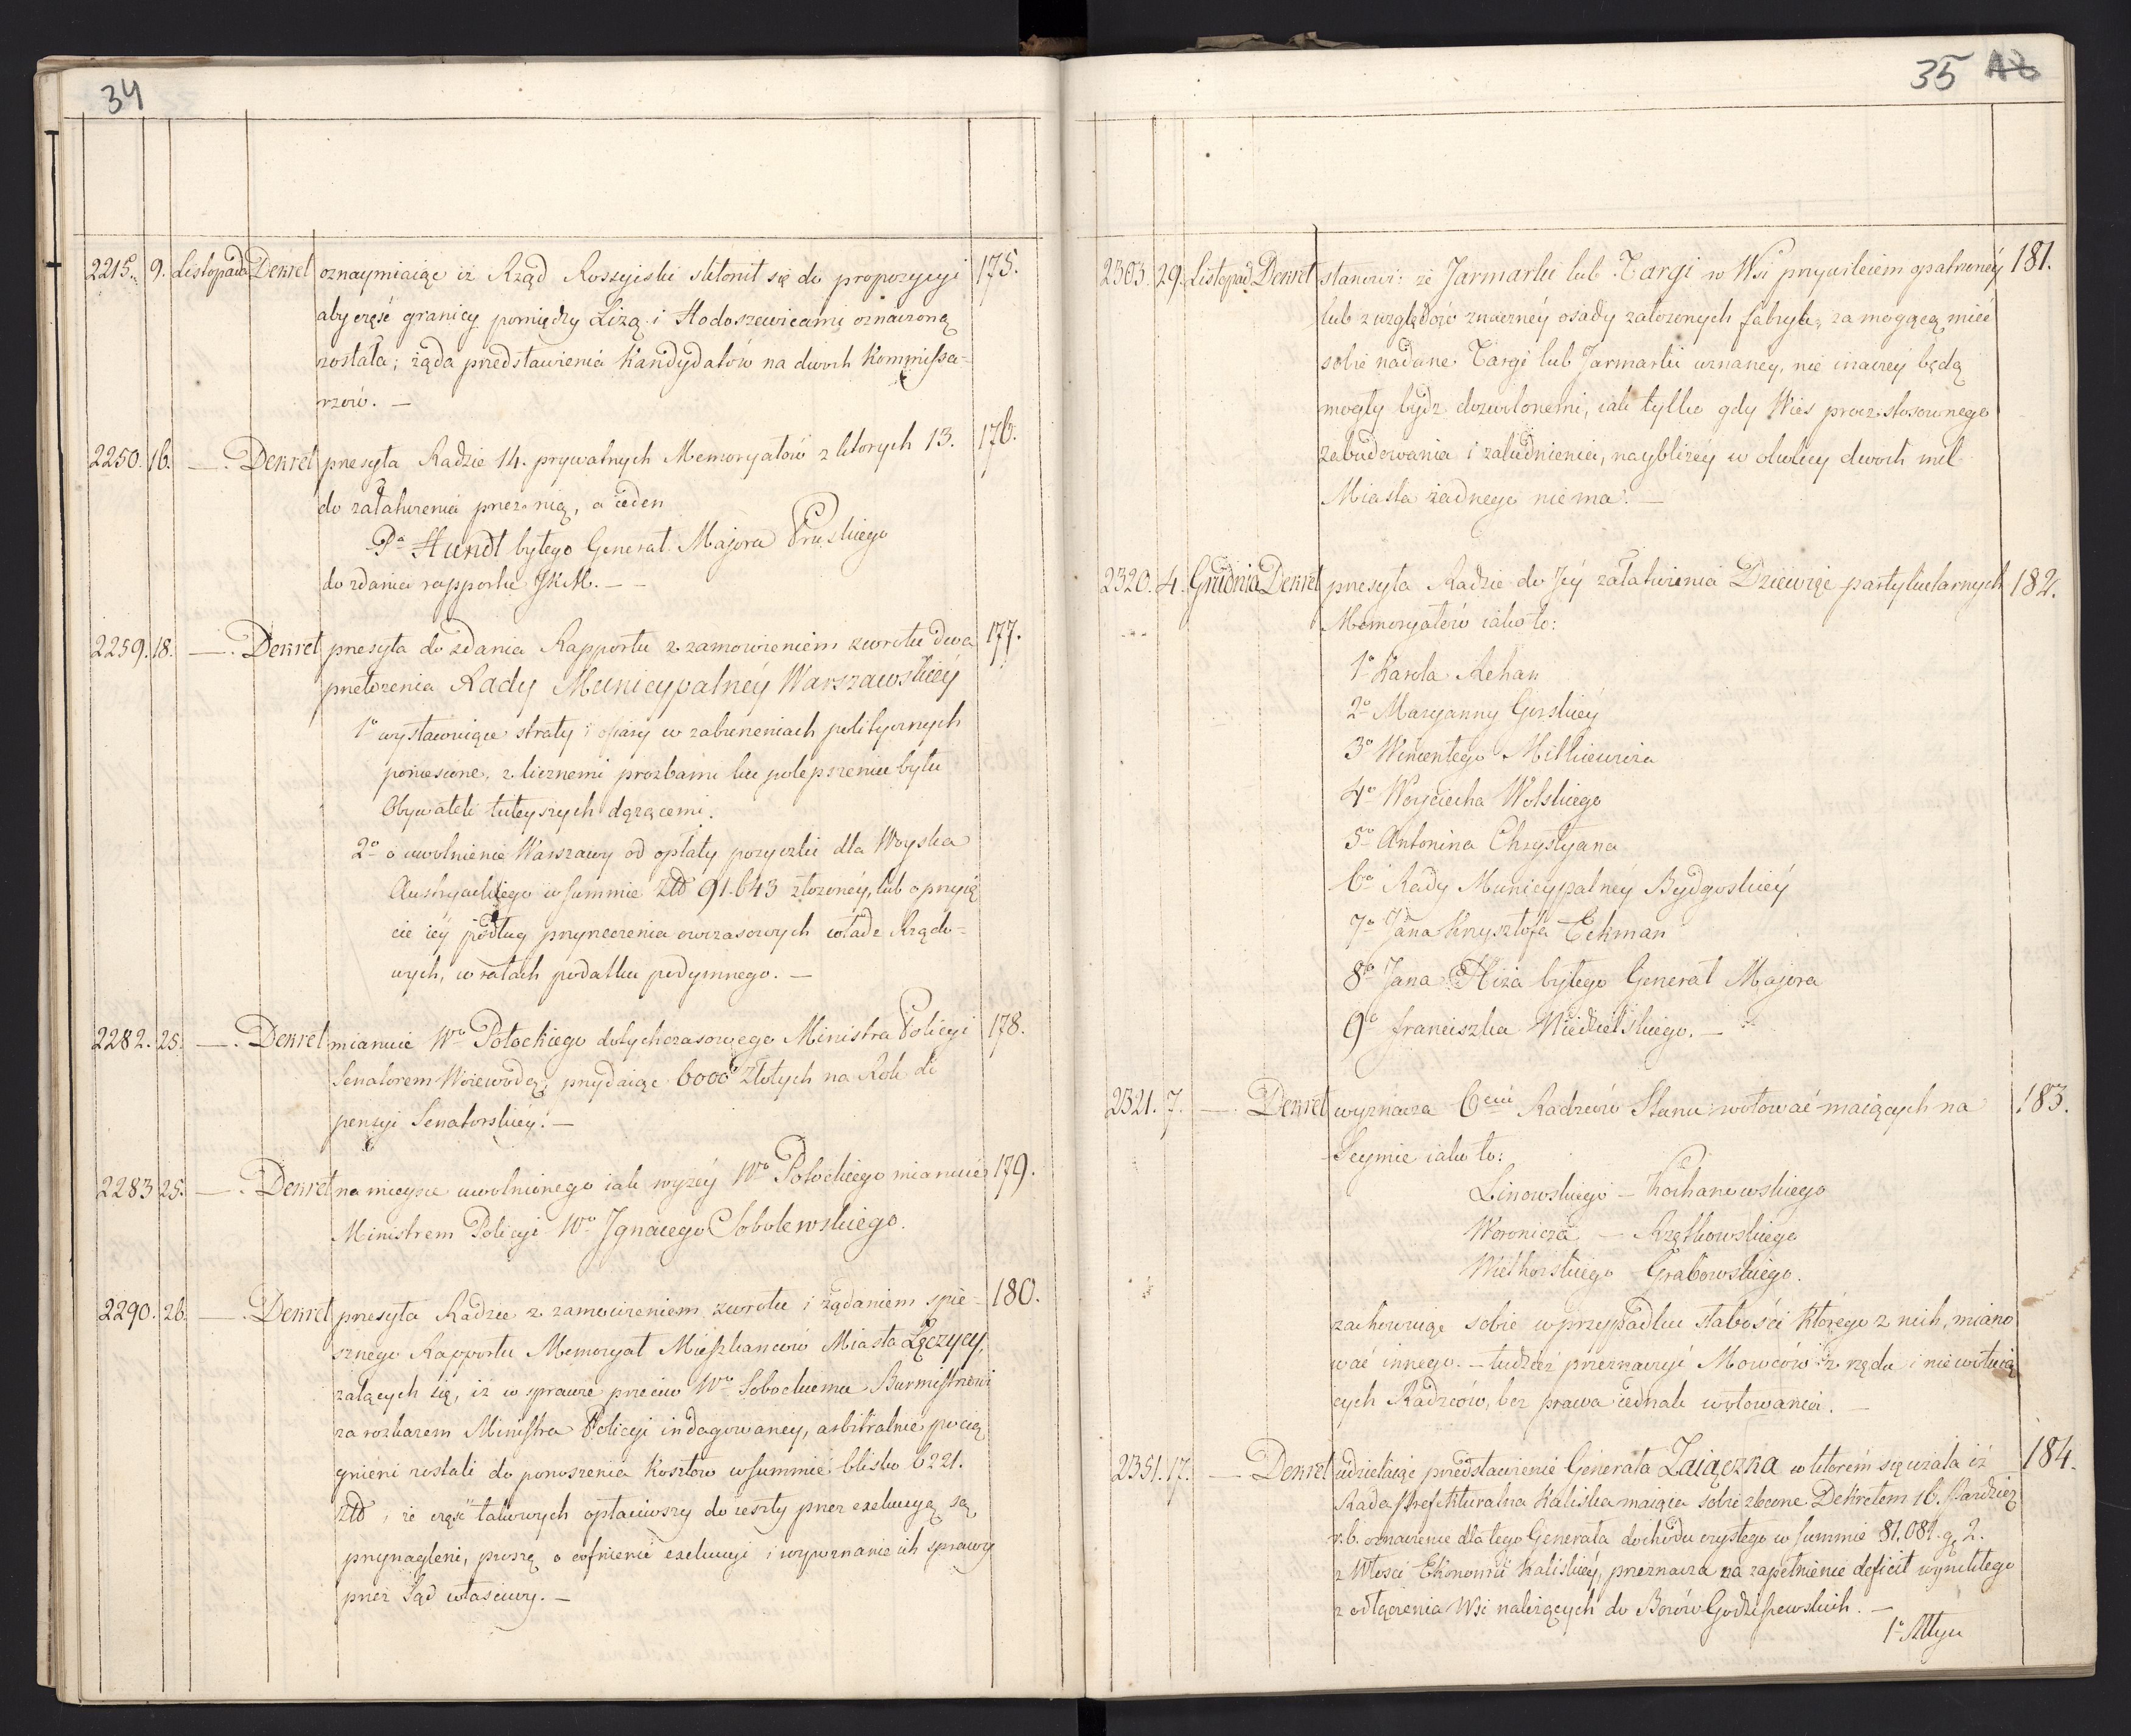 34
2215. 9. Listopada Dekret oznaymiaiąc iż Rząd Rossyiski skłonił się do propozycyi 175.
aby część granicy pomiędzy Lizą i Hodoszewicami oznaczoną
została; żąda przedstawienia Kandydatów na dwóch Kommissa-
rzów. —
2250. 16. — . Dekret przesyła Radzie 14. prywatnych Memoryałów z których 13. 176.
do załatwienia przez nią, a ieden
Pa Hundt byłego Generał Majora Pruskiego
do zdania rapportu JKM. — —
2259. 18. — . Dekret przesyła do zdania Rapportu z zamowieniem zwrotu dwa 177.
przełożenia Rady Municypalnéy Warszawskiéy
1o wystawuiące straty i ofiary w zaburzeniach politycznych
poniesione, z licznemi prozbami ku polepszeniu bytu
Obywateli tuteyszych dążącemi.
2o o uwolnienie Warszawy od opłaty pozyczki dla Woyska
Austryackiego w summie Złb 91.643 złożonéy, lub o przyię
cie iéy podług przyrzeczenia owczasowych władz Rządo-
wych, w ratach podatku podymnego. —
2282. 25. — . Dekret mianuie Wo Potockiego dotychczasowego Ministra Policyi 178.
Senatorem Woiewodą, przydaiąc 6000 Złotych na Rok do
pensyi Senatorskiéy. —
2283 25. — . Dekret na mieysce uwolnionego iak wyzéy Wo Potockiego mianuie 179.
Ministrem Policyi Wo Ignacego Sobolewskiego.
2290. 26. — . Dekret przesyła Radzie z zamowieniem zwrotu i żądaniem spie- 180.
sznego Rapportu Memoryał Mieszkancow Miasta Łęczycy,
żalących się, iż w sprawie przeciw Wo Sobockiemu Burmistrzowi
za rozkazem Ministra Policyi indagowaney, arbitralnie pocią
gnięni zostali do ponoszenia Kosztow w summie blisko 6221.
Złb, że część takowych opłaciwszy do reszty przez exekucyą są
przynagleni, proszą o cofnienie exekucyi i wyznanie ich sprawy
przez Sąd właściwy. —
35
2303. 29. Listopad. Dekret stanowi: że Jarmarki lub Targi w Wsi przywileiem opatrzonéy 181.
lub z względów znaczney osady założonych fabryk, za mogącą mieć
sobie nadane Targi lub Jarmarki uznaney, nie inaczey będą
mogły bydz dozwolonemi, iak tylko gdy Wieś procz stosownego
zabudowania i zaludnienia, naybliżéy w okolicy dwoch mil
Miasta żadnego nie ma. —
2320. 4. Grudnia Dekret przesyła Radzie do Jéy załatwienia Dziewięc partykularnych 182.
Memoryałów iako to:
1o Karola Rehan
2o Maryanny Girskiéy
3o Wincentego Mitkiewicza
4o Woyciecha Wolskiego
5o Antonina Chrystyana
6o Rady Municypalnéy Bydgoskiéy
7o Jana Krysztofa Eckman
8o Jana Hiża byłego Generał Majora
9o Franciszka Niedzielskiego. —
2321. 7. — . Dekret wyznacza 6ciu Radzców Stanu wotować maiących na 183.
Seymie iako to:
Linowskiego — Kochanowskiego
Woronicza — Rzętkowskiego
Wielhorskiego Grabowskiego.
zachowuiąc sobie w przypadku słabości którego z nich, miano
wać innego. — tudzież przeznaczyć Mowców z rzędu i nie wotuią
cych Radzców, bez prawa iednak wotowania. —
2351. 17. — Dekret udzielaiąc przedstawienie Generała Zaiączka w którém się użala iż 184.
Rada Prefekturalna Kaliska maiąca sobie zlecone Dekretem 16. Pazdzier
r.b. oznaczenie dla tego Generała dochodu czystego w summie 81.081. g. 2.
z Włości Ekonomii Kaliskiéy, przeznacza na zapełnienie deficit wynikłego
z odłączenia Wsi należących do Borów Godziszewskich. —
1o Młyn